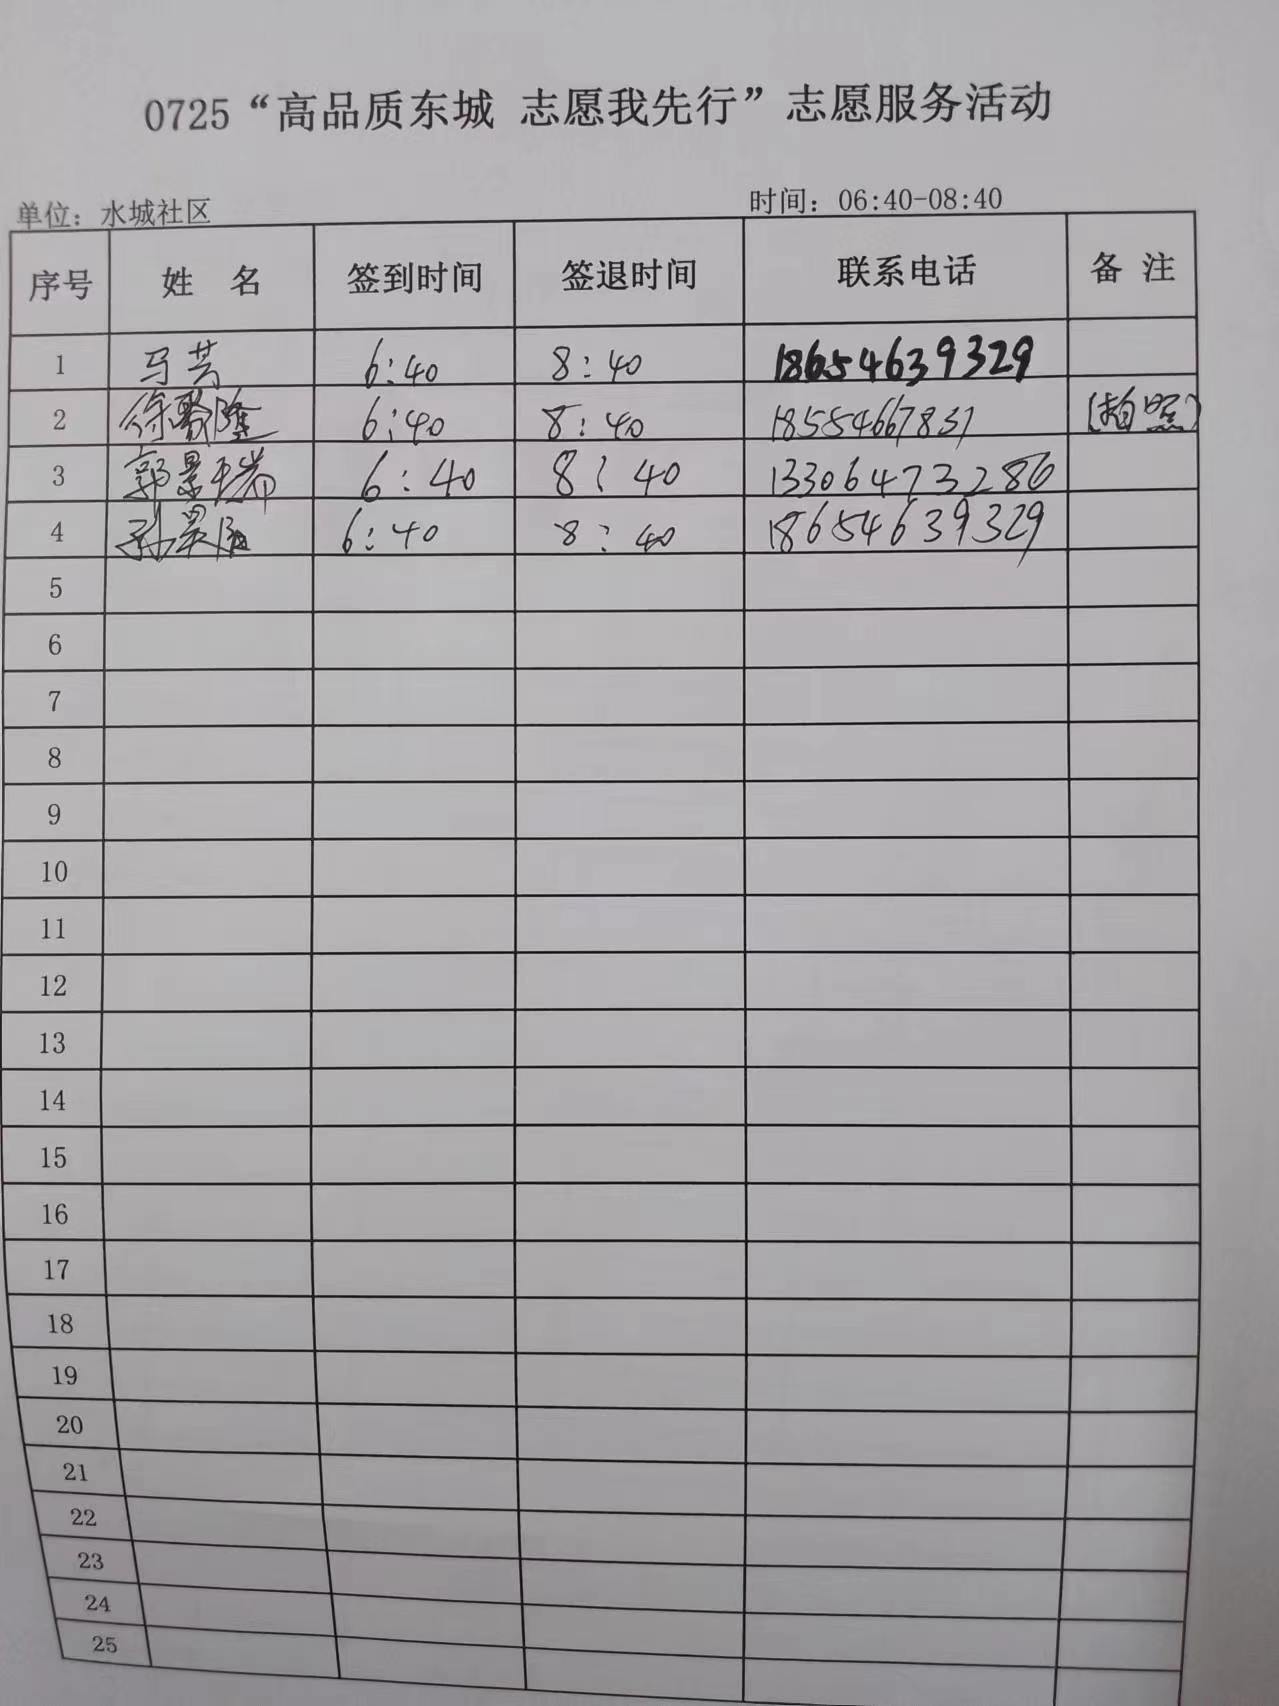 0725“高品质东城 志愿我先行”志愿服务活动
单位：水城社区 时间：06:40-08:40
序号 姓 名 签到时间 签退时间 联系电话 备 注
1 马芸 6:40 8:40 18654639329
2 徐 隆 6:40 8:40 18554667831 (拍照)
3 郭景瑞 6:40 8:40 13306473286
4 孙 6:40 8:40 18654639329
5
6
7
8
9
10
11
12
13
14
15
16
17
18
19
20
21
22
23
24
25